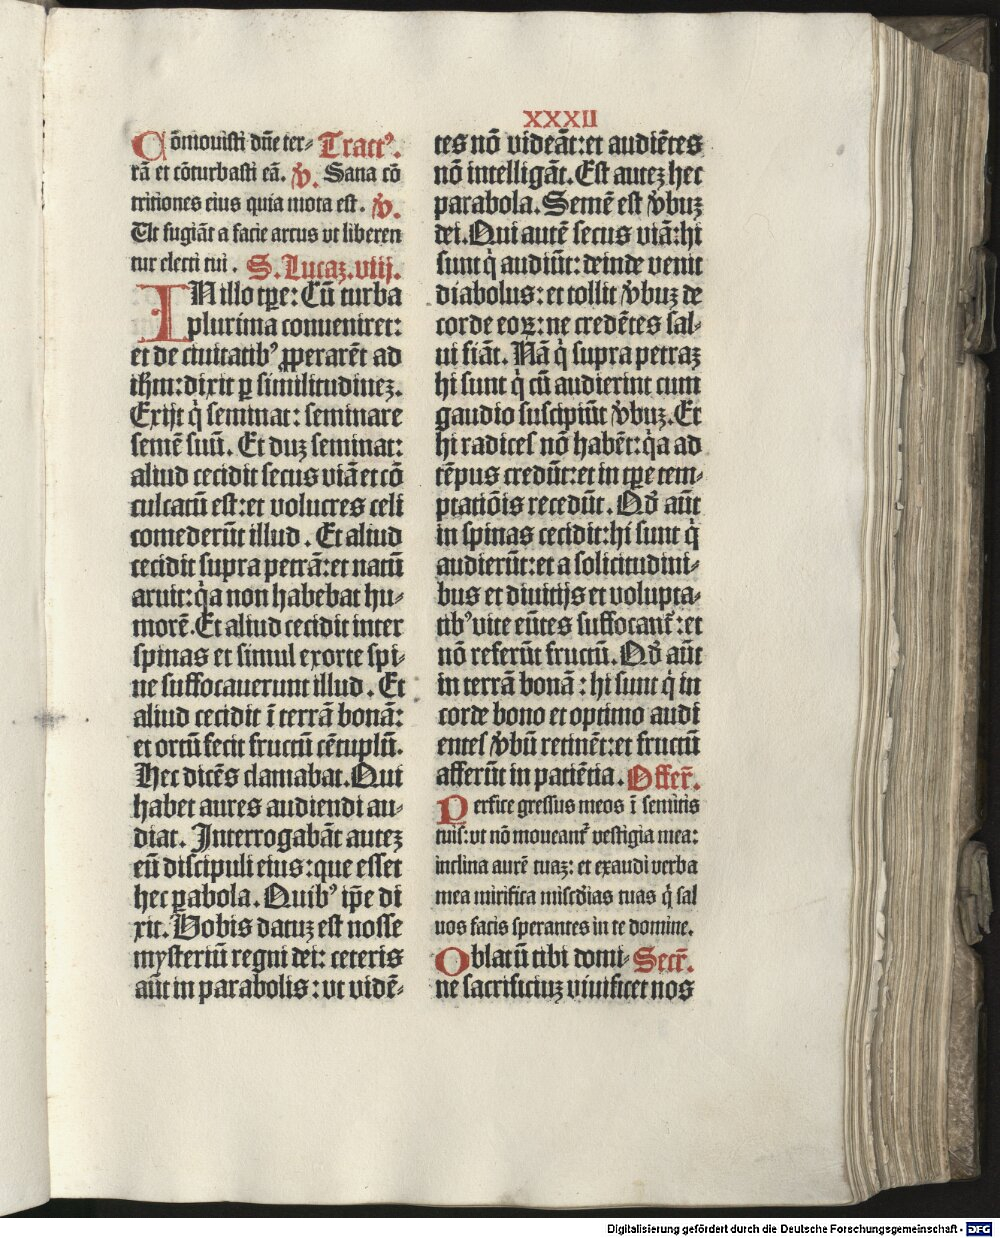 XXXII
Cōmouisti dn̄e ter⸗ Tractꝰ.
rā et cōturbasti eā. ꝟ. Sana cō
tritiones eius quia mota est. ꝟ.
Ut fugiāt a facie arcus vt liberen
tur electi tui. S. Lucaꝫ. viij.
IN illo tꝑe: Cū turba
plurima conueniret:
et de ciuitatibꝰ ꝓperarēt ad
ihm̄: dixit ꝑ similitudineꝫ.
Exijt q̇ seminat: seminare
semē suū. Et duꝫ seminat:
aliud cecidit secus viā et cō
culcatū est: et volucres celi
comederūt illud. Et aliud
cecidit supra petrā: et natū
aruit: q̇a non habebat hu⸗
morē. Et aliud cecidit inter
spinas et simul exorte spi⸗
ne suffocauerunt illud. Et
aliud cecidit ī terrā bonā:
et ortū fecit fructū cētuplū.
Hec dicēs clamabat. Qui
habet aures audiendi au⸗
diat. Interrogabāt auteꝫ
eū discipuli eius: que esset
hec ꝑabola. Quibꝰ ip̄e di
xit. Uobis datuꝫ est nosse
mysteriū regni dei: ceteris
aūt in parabolis: vt vidē⸗
tes nō videāt: et audiētes
nō intelligāt. Est auteꝫ hec
parabola. Semē est ꝟbuꝫ
dei. Qui autē secus viā: hi
sunt q̇ audiūt: deinde venit
diabolus: et tollit ꝟbuꝫ de
corde eoꝝ: ne credētes sal⸗
ui fiāt. Nā q̇ supra petraꝫ
hi sunt q̇ cū audierint cum
gaudio suscipiūt ꝟbuꝫ. Et
hi radices nō habēt: q̇a ad
tēpus credūt: et in tꝑe tem⸗
ptatiōis recedūt. Qđ aūt
in spinas cecidit: hi sunt q̇
audierūt: et a solicitudini⸗
bus et diuitijs et volupta⸗
tibꝰ vite eūtes suffocant᷑: et
nō referūt fructū. Qđ aūt
in terrā bonā: hi sunt q̇ in
corde bono et optimo audi
entes ꝟbū retinēt: et fructū
afferūt in patiētia. Offer᷑.
Perfice gressus meos ī semitis
tuis: vt nō moueant᷑ vestigia mea:
inclina aurē tuaꝫ: et exaudi verba
mea mirifica misc̄dias tuas q̇ sal
uos facis sperantes in te domine.
Oblatū tibi domi⸗ Secr᷑.
ne sacrificiuꝫ viuificet nos
Digitalisierung gefördert durch die Deutsche Forschungsgemeinschaft - DFG